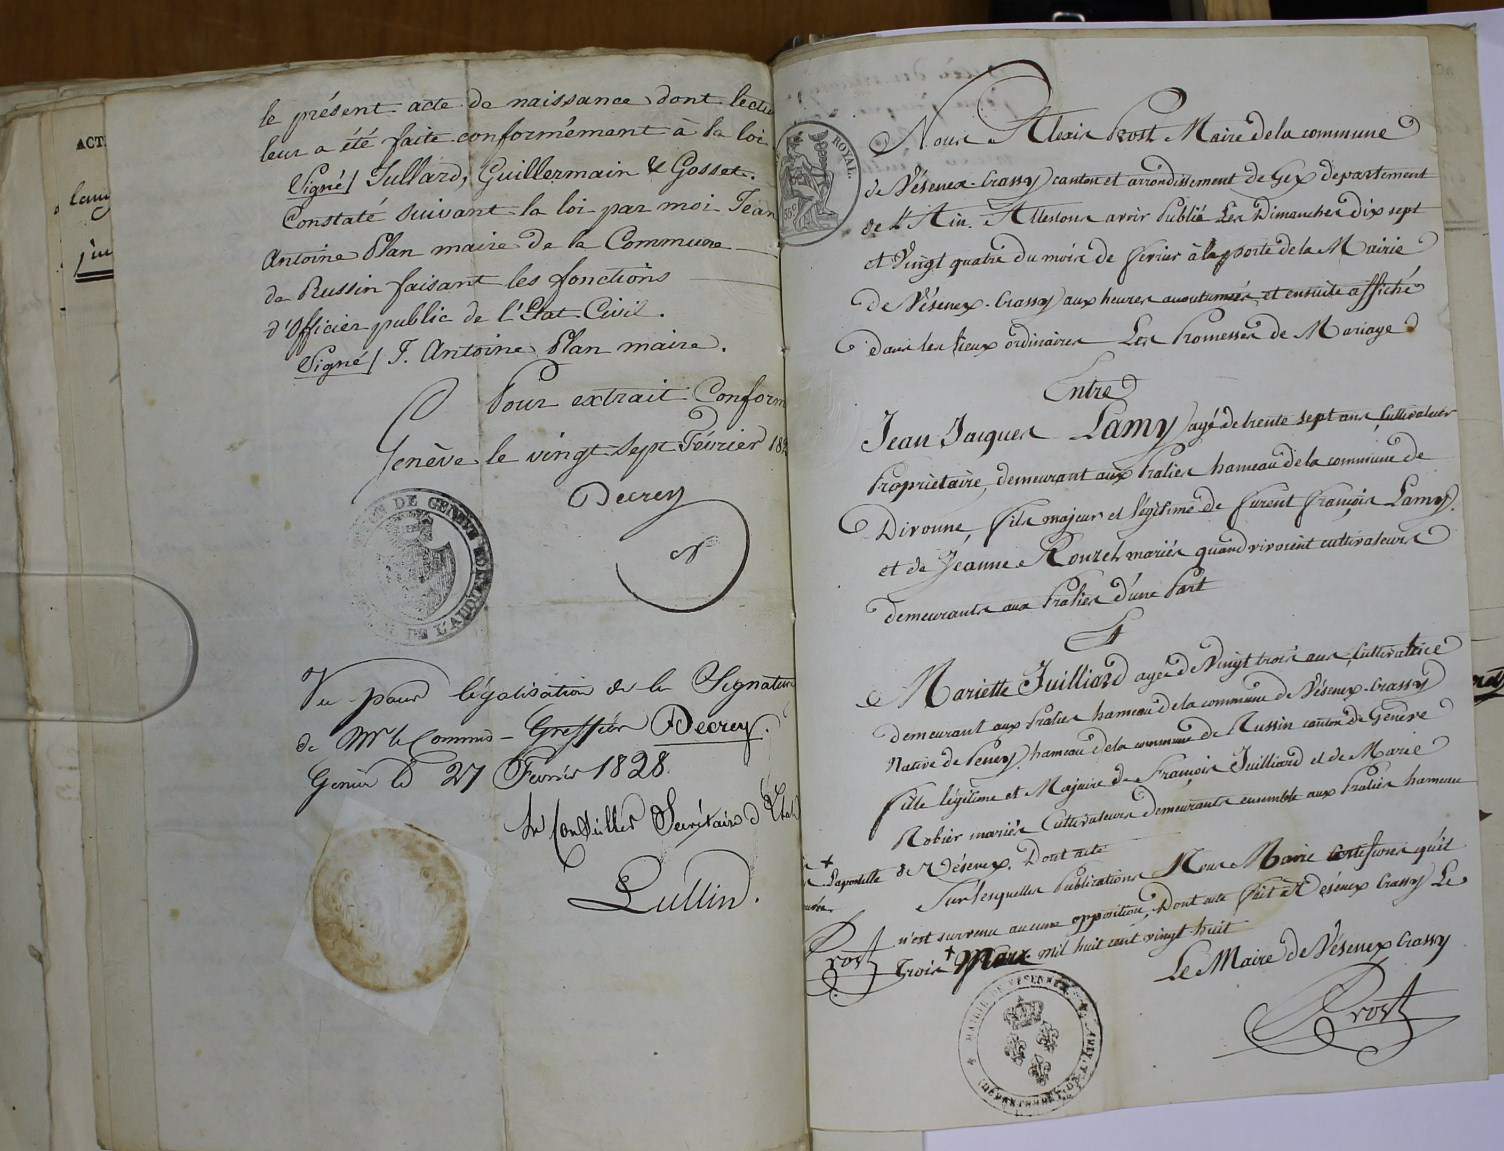 ACT
lamy
le présent acte de naissance dont lectu
leur a été faite conformément à la loi
Signé / Jullard, Guillermain & Gosset.
Constaté suivant la loi par moi Jean
Antoine Plan maire de la Commune
de Russin faisant les fonctions
d'Officier public de l'Etat Civil.
Signé / J. Antoine Plan maire.
Pour extrait Conform
Genève le vingt sept Février 182
Decrey
DE GENEVE
DE L'AUD
Vu pour légalisation de la Signature
de Mr le Commis-Greffier Decrey.
Genève le 27 Fevrier 1828.
Le Conseiller Secrétaire d'Etat
Lullin.
ROYAL.
Nous Alexis Prost Maire de la commune
de Vésenex-Crassy canton et arrondissement de Gex departement
de l'Ain. Attestons avoir Publié Les Dimanches dix sept
et Vingt quatre du mois de fevrier à la porte de la Mairie
de Vésenex-Crassy aux heures acoutumées et ensuite affiché
dans les lieux ordinaires Les Promesses de Mariage
Entre
Jean Jacques Lamy agé de trente sept ans Cultivateur
Propriétaire, demeurant aux Pralies hameau de la commune de
Divonne, fils majeur et légitime de furent françois Lamy
et de Jeanne Rouzet mariés quand vivoient cultivateurs
demeurants aux Pralies d'une Part
Et
Mariette Juilliard agée de Vingt trois ans, Cultivatrice
demeurant aux Pralies hameau de la commune de Vésenex-Crassy
Native de Peney hameau de la commune de Russin canton de Genève
fille légitime et Majeure de François Juilliard et de Marie
Robier mariés Cultivateurs demeurants ensemble aux Pralies hameau
de Vésenex. Dont acte
Sur lesquelles Publications Nous Maire certifions qu'il
n'est survenu aucune opposition, Dont acte fait à Vésenex Crassy Le
Trois + Mars mil huit cent vingt huit
+
Prost
Le Maire de Vésenex Crassy
Prost
MAIRIE DE VESENEX